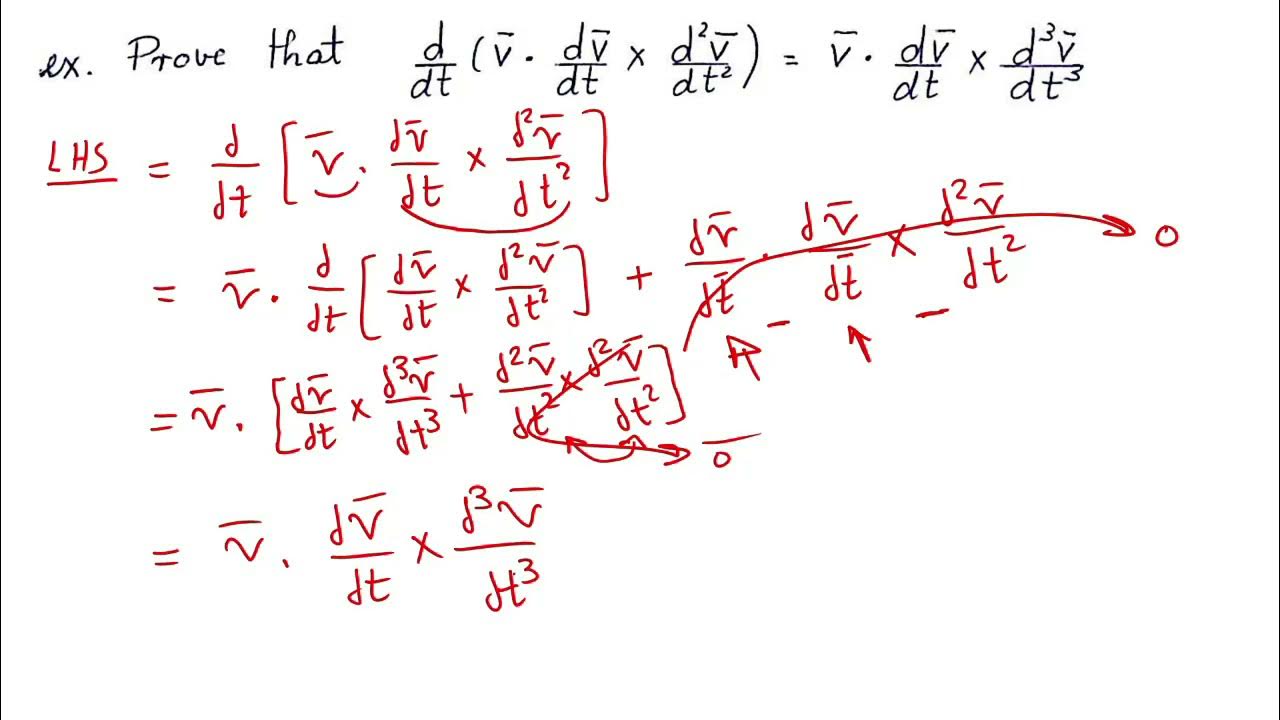 ex. Prove that d/dt (v̄ · dv̄/dt × d²v̄/dt²) = v̄ · dv̄/dt × d³v̄/dt³
LHS = d/dt [v̄ · dv̄/dt × d²v̄/dt²]
= v̄ · d/dt [dv̄/dt × d²v̄/dt²] + dv̄/dt · dv̄/dt × d²v̄/dt² → 0
= v̄ · [dv̄/dt × d³v̄/dt³ + d²v̄/dt² × d²v̄/dt²] → 0̄
= v̄ · dv̄/dt × d³v̄/dt³